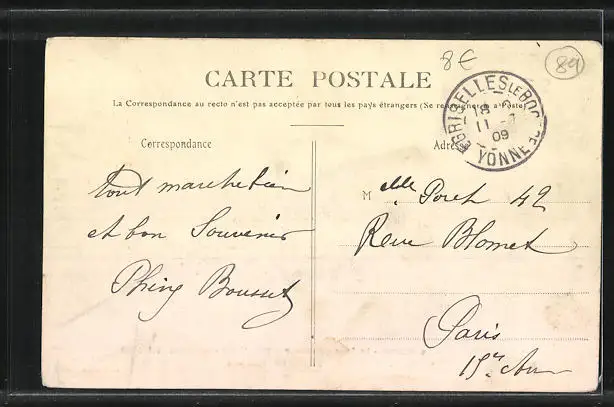 8€
89
CARTE POSTALE
La Correspondance au recto n'est pas acceptée par tous les pays étrangers (Se renseigner à la Poste)
EGRISELLES LE BOCAGE
18
11 - 7
09
YONNE
Correspondance
Adresse
tout marche bien
et bon Souvenir
Bousset
Melle Poret 42
Rue Blomet
Paris
15me